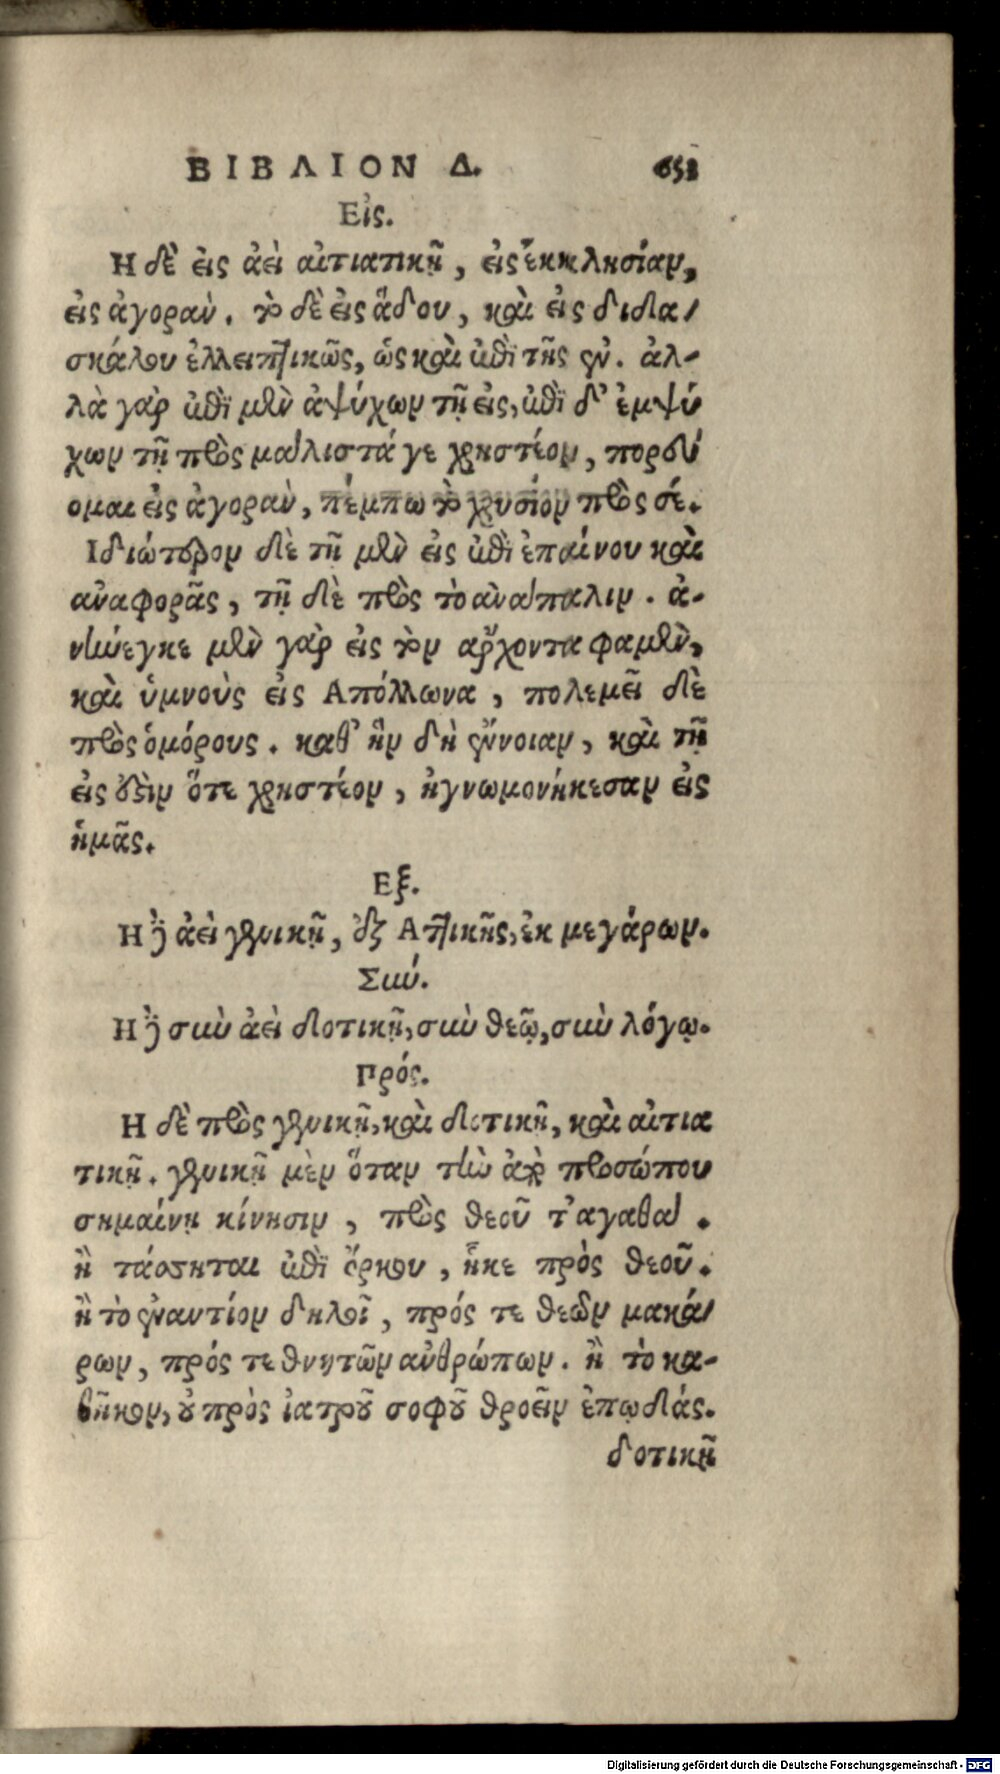 ΒΙΒΛΙΟΝ Δ.
Εἰς.
Η δὲ εἰς ἀεὶ αἰτιατικῇ, εἰς ἐκκλησίαν,
εἰς ἀγοράν. τὸ δὲ εἰς ᾅδου, καὶ εἰς διδα
σκάλου ἐλλειπτικῶς, ὡς καὶ ἐπὶ τῆς ἐν. ἀλ-
λὰ γὰρ ἐπὶ μὲν ἀψύχων τῇ εἰς, ἐπὶ δ' ἐμψύ
χων τῇ πρὸς μάλιστά γε χρηστέον, πορεύ
ομαι εἰς ἀγορὰν, πέμπω τὸ χρυσίον πρὸς σέ.
Ιδιώτερον δὲ τῇ μὲν εἰς ἐπὶ ἐπαίνου καὶ
ἀναφορᾶς, τῇ δὲ πρὸς τὸ ἀνάπαλιν. ἀ-
νήνεγκε μὲν γὰρ εἰς τὸν ἄρχοντα φαμὲν,
καὶ ὑμνοὺς εἰς Απόλλωνα, πολεμεῖ δὲ
πρὸς ὁμόρους. καθ' ἣν δὴ ἔννοιαν, καὶ τῇ
εἰς ἔσιν ὅτε χρηστέον, ἠγνωμονήκεσαν εἰς
ἡμᾶς.
Εξ.
Η δὲ ἀεὶ γενικῇ, ἐξ Ατικῆς, ἐκ μεγάρων.
Σύν.
Η δὲ σὺν ἀεὶ δοτικῇ, σὺν θεῷ, σὺν λόγῳ.
Πρός.
Η δὲ πρὸς γενικῇ, καὶ δοτικῇ, καὶ αἰτια
τικῇ. γενικῇ μὲν ὅταν τὴν ἀπὸ προσώπου
σημαίνῃ κίνησιν, πρὸς θεοῦ τ' αγαθά.
ἢ τάσσηται ἐπὶ ὅρκου, ἧκε πρὸς θεοῦ.
ἢ τὸ ἐναντίον δηλοῖ, πρός τε θεῶν μακά
ρων, πρός τε θνητῶν ἀνθρώπων. ἢ τὸ κα-
θῆκον, οὐ πρὸς ἰατροῦ σοφοῦ θροεῖν ἐπῳδάς.
δοτικῇ
Digitalisierung gefördert durch die Deutsche Forschungsgemeinschaft - DFG